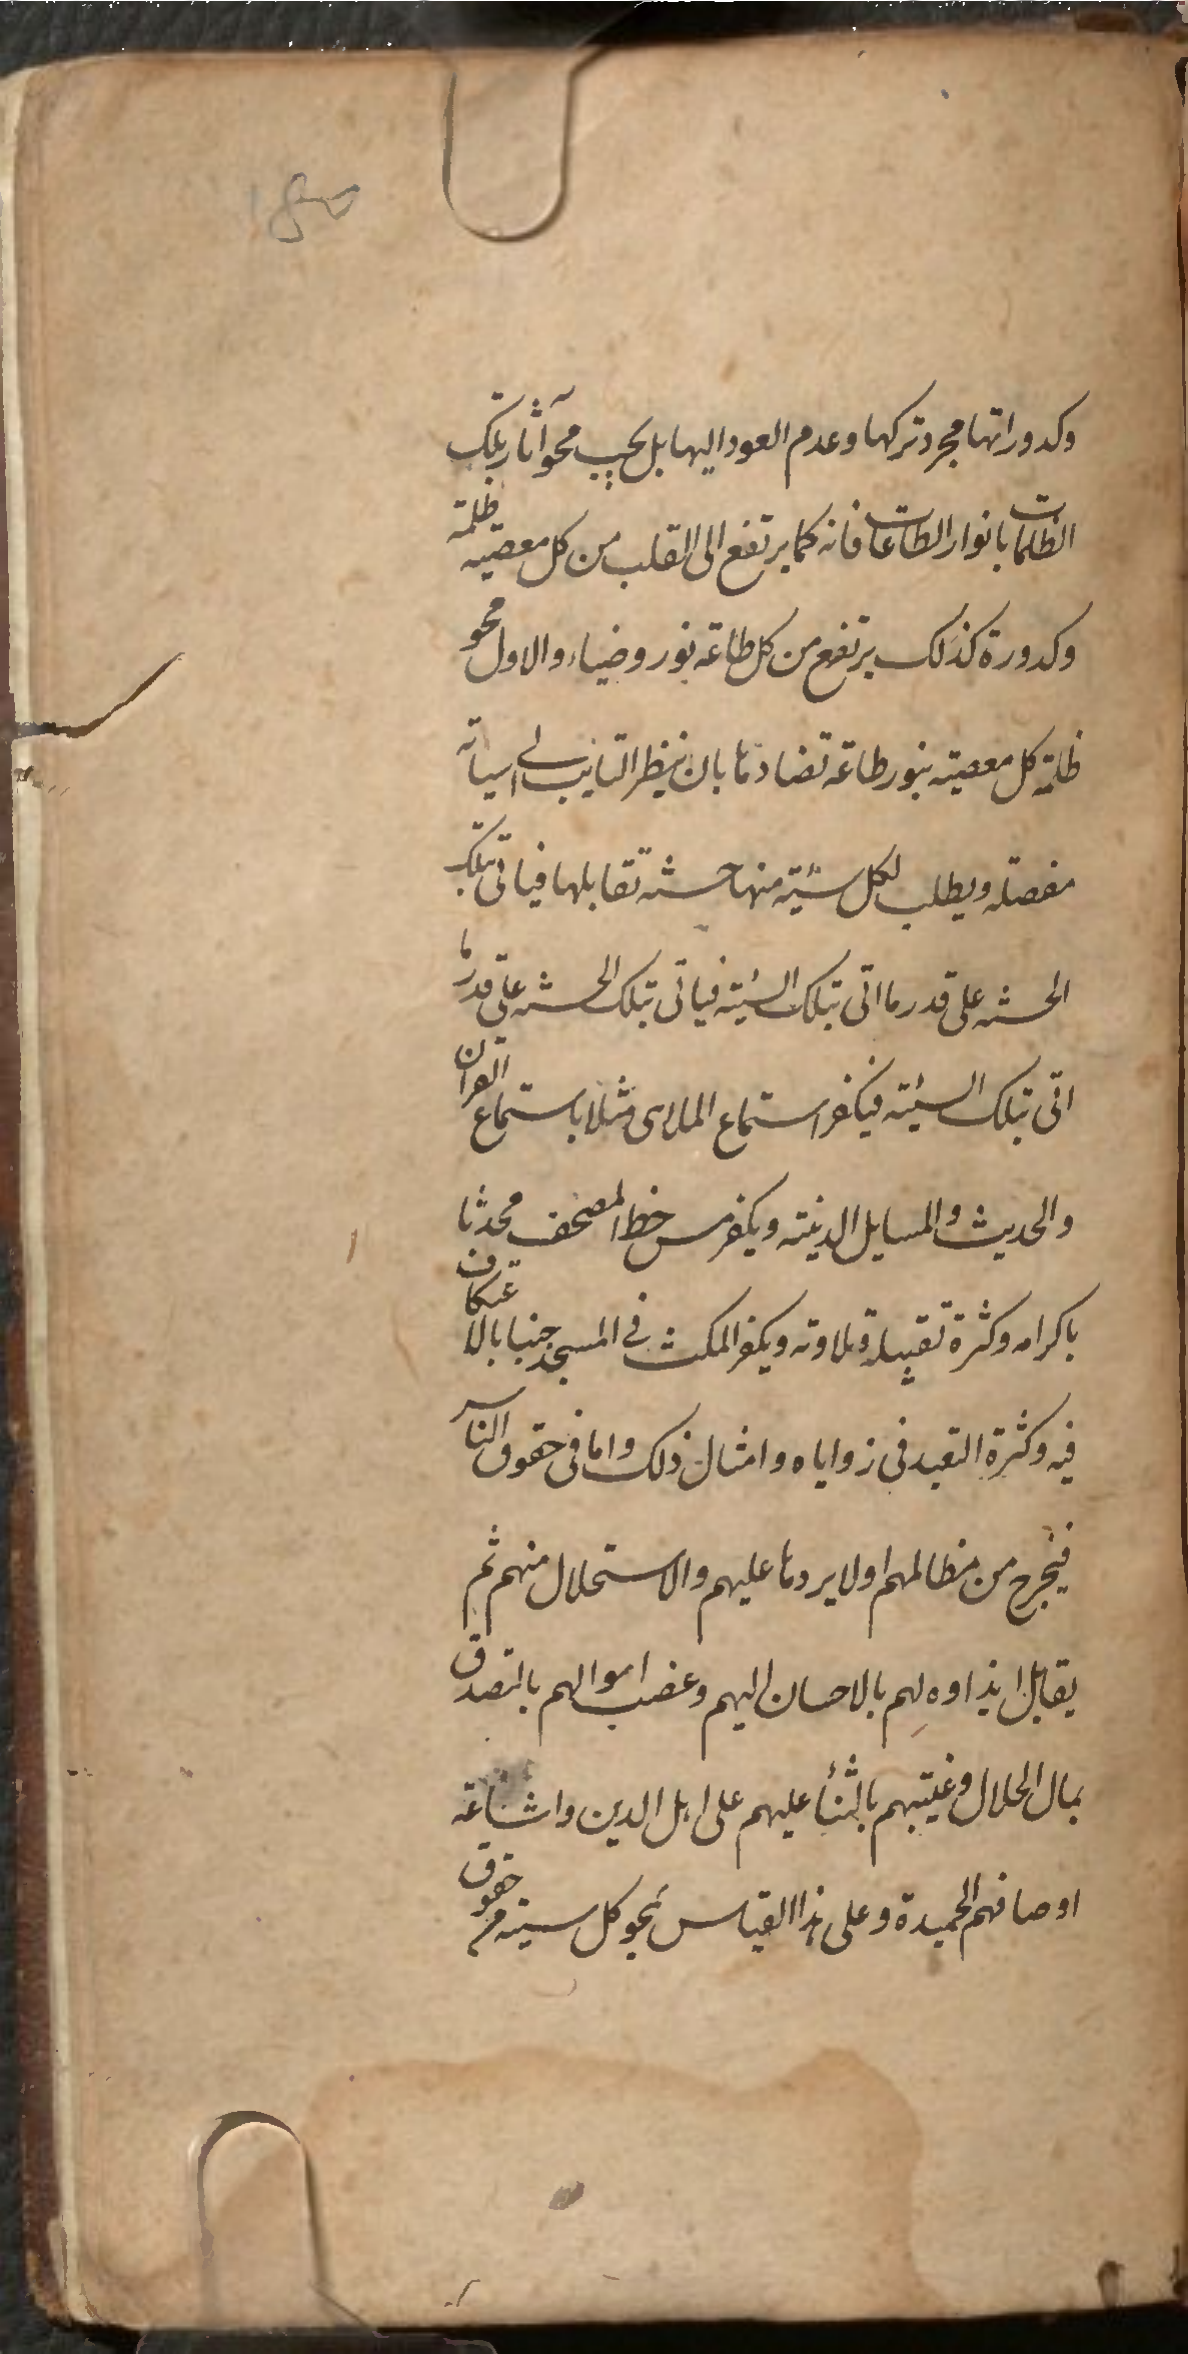 وكدوراتها مجرد تركها وعدم العود اليها بل يجب محو آثار تلك
الظلمات بانوار الطاعات فانه كما يرتفع الى القلب من كل معصية ظلمة
وكدورة كذلك يرتفع من كل طاعة نور وضياء والاولى محو
ظلمة كل معصية بنور طاعة تضادها بان ينظر التايب الى سياته
مفصلة ويطلب لكل سيئة منها حسنة تقابلها فياتى بتلك
الحسنة على قدر ما اتى بتلك السيئة فياتى بتلك الحسنة على قدر ما
اتى بتلك السيئة فيكفر استماع الملاهى مثلا باستماع القرآن
والحديث والمسايل الدينية ويكفر مس خط المصحف محدثا
باكرامه وكثرة تقبيله وتلاوته ويكفر المكث فى المسجد جنبا بالاعتكاف
فيه وكثرة التعبد فى زواياه وامثال ذلك واما فى حقوق الناس
فيخرج من مظالمهم اولا بردها عليهم والاستحلال منهم ثم
يقابل ايذاوه لهم بالاحسان اليهم وغصب اموالهم بالتصدق
بمال الحلال وغيبتهم بالثنأ عليهم على اهل الدين واشاعة
اوصافهم الحميدة وعلى هذا القياس يمحو كل سيئة من حقوق